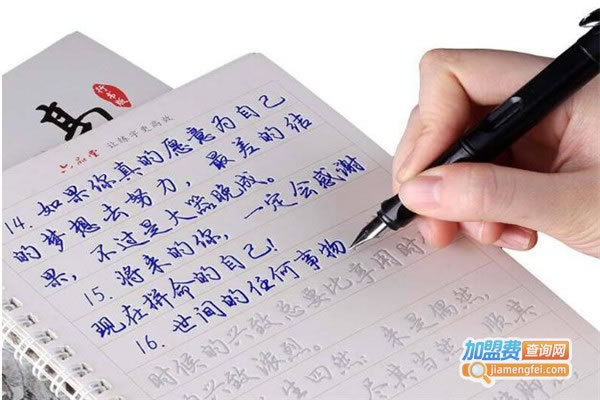 高
行书版
六品堂 让练字更高效
14. 如果你真的愿意为自己
的梦想去努力，最差的结
果，不过是大器晚成。
15. 将来的你，一定会感谢
现在拼命的自己！
16. 世间的任何事物
时候的兴致总要比享用时
的兴致浓烈。
生四然：来是偶然，
尽其当然，顺其
加盟费查询网
jiamengfei.com